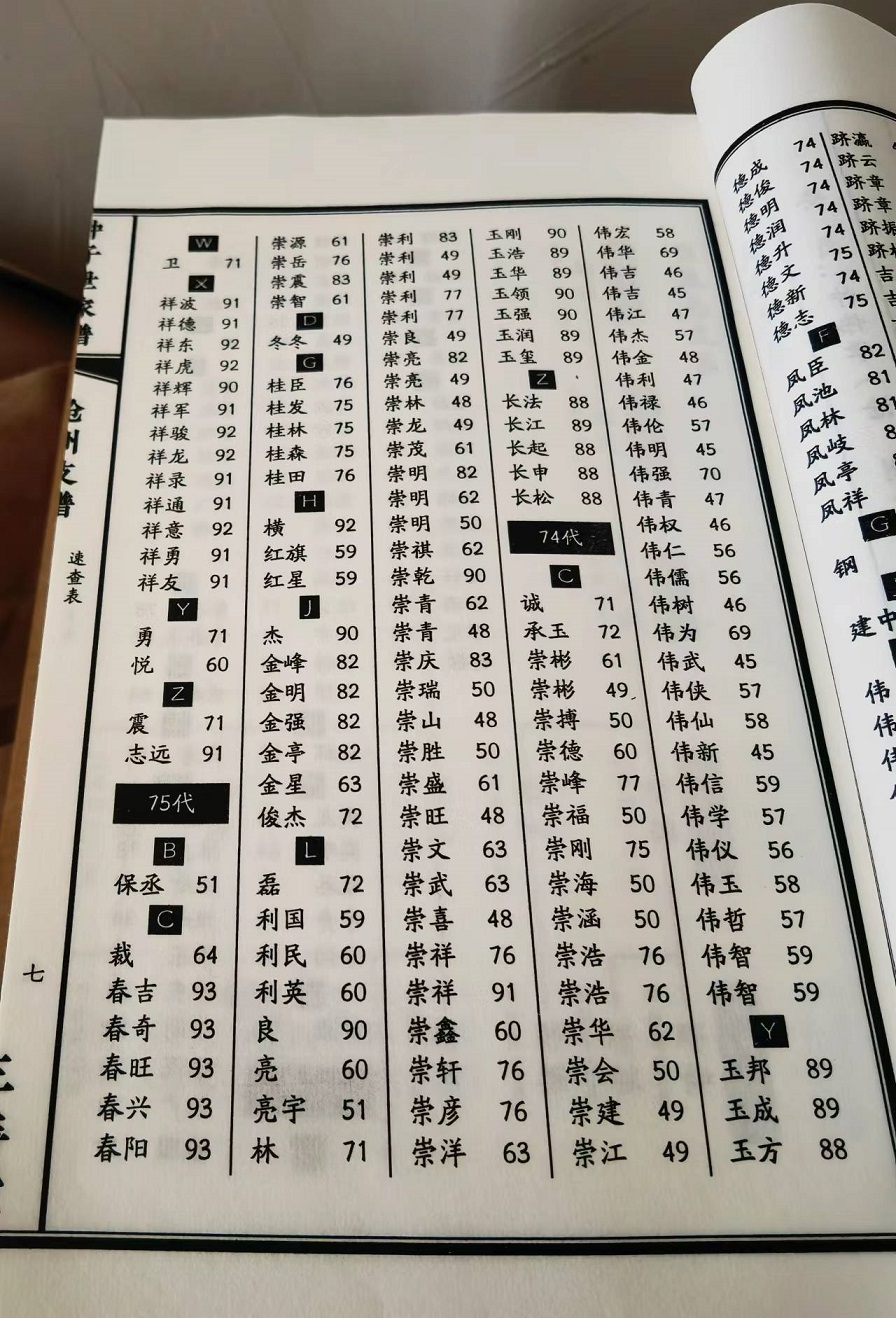 跻瀛
跻云
跻章
跻章
跻振
德成 74
德俊 74
德明 74
德润 74
德升 74
德文 75
德新 74
德志 75
F
凤臣 82
凤池 81
凤林 81
凤岐
凤亭
凤祥
G
钢
建中
伟
伟宏 58
伟华 69
伟吉 46
伟吉 45
伟江 47
伟杰 57
伟金 48
伟利 47
伟禄 46
伟伦 57
伟明 45
伟强 70
伟青 47
伟权 46
伟仁 56
伟儒 56
伟树 46
伟为 69
伟武 45
伟侠 57
伟仙 58
伟新 45
伟信 59
伟学 57
伟仪 56
伟玉 58
伟哲 57
伟智 59
伟智 59
Y
玉邦 89
玉成 89
玉方 88
玉刚 90
玉浩 89
玉华 89
玉领 90
玉强 90
玉润 89
玉玺 89
Z
长法 88
长江 89
长起 88
长申 88
长松 88
74代
C
诚 71
承玉 72
崇彬 61
崇彬 49
崇搏 50
崇德 60
崇峰 77
崇福 50
崇刚 75
崇海 50
崇涵 50
崇浩 76
崇浩 76
崇华 62
崇会 50
崇建 49
崇江 49
崇利 83
崇利 49
崇利 49
崇利 77
崇利 77
崇良 49
崇亮 82
崇亮 49
崇林 48
崇龙 49
崇茂 61
崇明 82
崇明 62
崇明 50
崇祺 62
崇乾 90
崇青 62
崇青 48
崇庆 83
崇瑞 50
崇山 48
崇胜 50
崇盛 61
崇旺 48
崇文 63
崇武 63
崇喜 48
崇祥 76
崇祥 91
崇鑫 60
崇轩 76
崇彦 76
崇洋 63
崇源 61
崇岳 76
崇震 83
崇智 61
D
冬冬 49
G
桂臣 76
桂发 75
桂林 75
桂森 75
桂田 76
H
横 92
红旗 59
红星 59
J
杰 90
金峰 82
金明 82
金强 82
金亭 82
金星 63
俊杰 72
L
磊 72
利国 59
利民 60
利英 60
良 90
亮 60
亮宇 51
林 71
W
卫 71
X
祥波 91
祥德 91
祥东 92
祥虎 92
祥辉 90
祥军 91
祥骏 92
祥龙 92
祥录 91
祥通 91
祥意 92
祥勇 91
祥友 91
Y
勇 71
悦 60
Z
震 71
志远 91
75代
B
保丞 51
C
裁 64
春吉 93
春奇 93
春旺 93
春兴 93
春阳 93
速查表
七